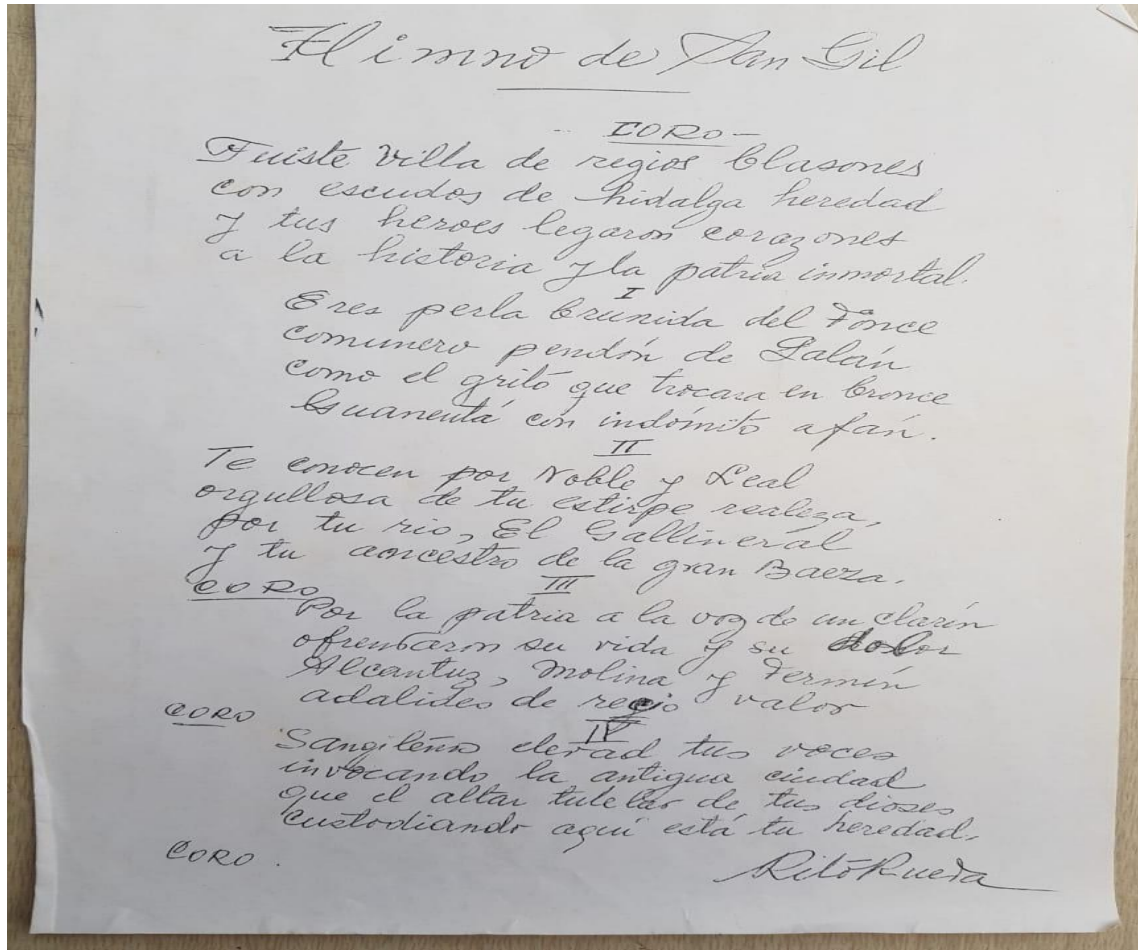 Himno de San Gil
CORO -
Fuiste Villa de regios blasones
con escudos de hidalga heredad
y tus heroes legaron corazones
a la historia y la patria inmortal.
I
Eres perla bruñida del Fonce
comunero pendón de Galán
como el grito que trocara en bronce
Guanentá con indómito afán.
II
Te conocen por Noble y Leal
orgullosa de tu estirpe realeza,
por tu rio, El Gallineral
y tu ancestro de la gran Baeza.
CORO
III
Por la patria a la voz de un clarín
ofrendaron su vida y su dolor
Alcantuz, Molina y Fermín
adalides de regio valor
CORO
IV
Sangileño elevad tus voces
invocando la antigua ciudad
que el altar tutelar de tus dioses
custodiando aquí está tu heredad.
CORO.
Rito Rueda